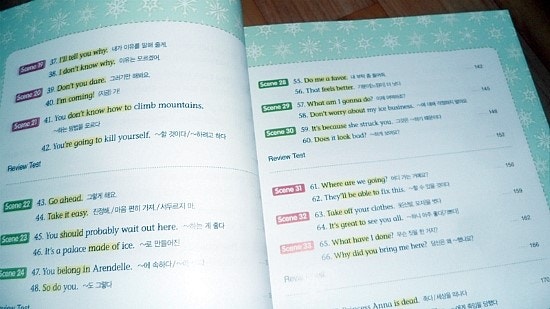 Scene 19
37. I'll tell you why. 내가 이유를 말해 줄게.
38. I don't know why. 이유는 모르겠어.
Scene 20
39. Don't you dare. 그러기만 해봐요.
40. I'm coming! (지금) 가!
Scene 21
41. You don't know how to climb mountains.
~하는 방법을 모르다
42. You're going to kill yourself. ~할 것이다/~하려고 하다
Review Test
Scene 22
43. Go ahead. 그렇게 해요.
44. Take it easy. 진정해/마음 편히 가져/서두르지 마.
45. You should probably wait out here. ~하는 게 좋다
46. It's a palace made of ice. ~로 만들어진
Scene 24
47. You belong in Arendelle. ~에 속하다
48. So do you. ~도 그렇다
Review Test
Scene 28
55. Do me a favor.
142
56. That feels better.
Scene 29
57. What am I gonna do?
145
58. Don't worry about my ice business.
Scene 30
59. It's because she struck you.
148
60. Does it look bad?
Review Test
156
Scene 31
61. Where are we going? 어디 가는 거예요?
62. They'll be able to fix this. ~할 수 있을 것이다
159
63. Take off your clothes.
64. It's great to see you all.
162
65. What have you done? 무슨 짓을 한 거지?
66. Why did you bring me here? 당신은 왜 ~했나요?
166
Princess Anna is dead. 죽다/세상을 떠나다
170